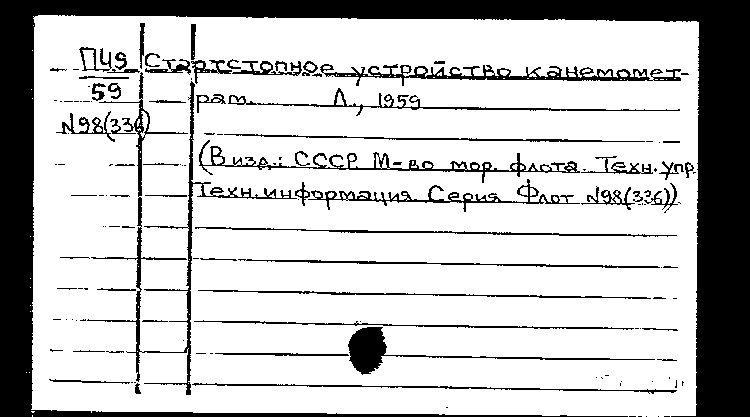 П49 Стартстопное устройство к анемомет-
59 рам. Л., 1959
N98(336)
(В изд.: СССР М-во мор. флота. Техн. упр.
Техн. информация. Серия Флот N98(336))